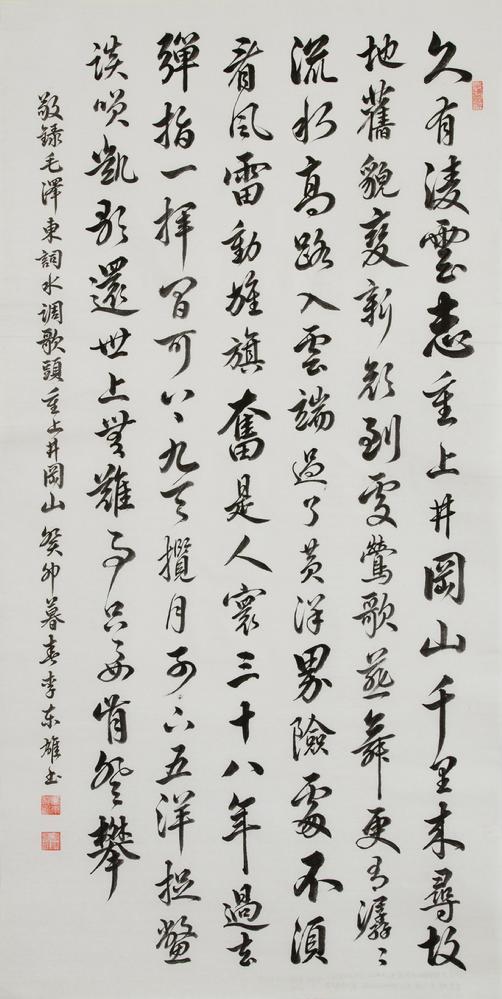 久有凌雲志重上井岡山千里来尋故
地舊貌變新顔到處鶯歌燕舞更有潺〻
流水高路入雲端過了黄洋界險處不須
看風雷動旌旗奮是人寰三十八年過去
彈指一揮間可上九天攬月可下五洋捉鱉
談笑凱歌還世上無難事只要肯登攀
敬録毛澤東詞水调歌頭重上井岡山 癸卯暮春李东雄书